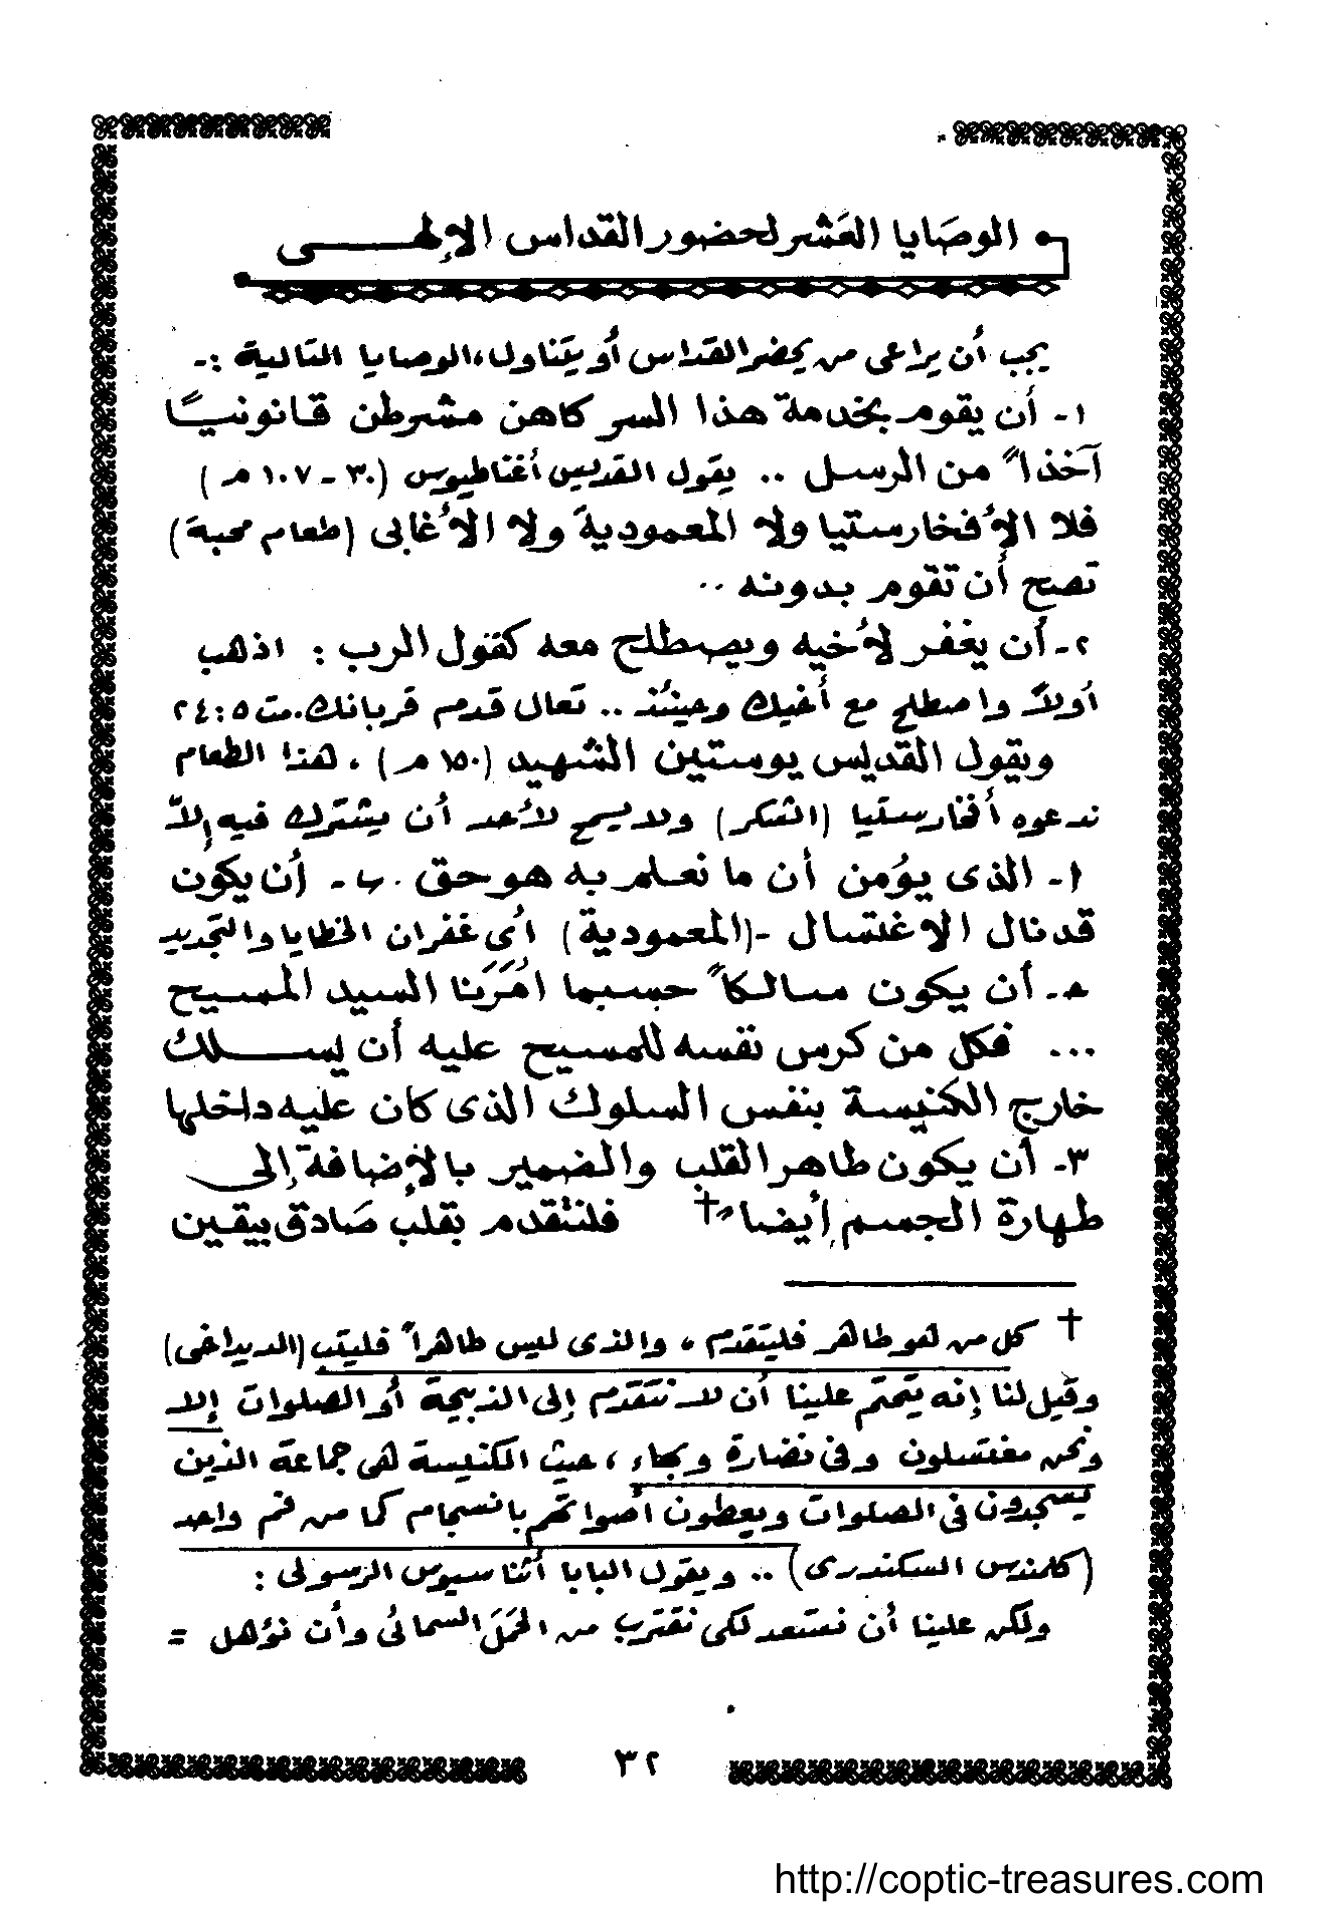 الوصَايا العَشر لحضور القداس الإلهـــى
يجب أن يراعى من يحضر القداس أو يتناول، الوصايا التالية :-
١- أن يقوم بخدمة هذا السر كاهن مشرطن قانونيـًا
آخذاً من الرسل .. يقول القديس أغناطيوس (٣٠ - ١٠٧ م)
فلا الأفخارستيا ولا المعمودية ولا الأغابى (طعام محبة)
تصح أن تقوم بدونه ..
٢- أن يغفر لأخيه ويصطلح معه كقول الرب : اذهب
أولاً واصطلح مع أخيك وحينئذ .. تعال قدم قربانك. مت ٥ : ٢٤
ويقول القديس يوستين الشهيد (١٥٠ م) ، هذا الطعام
ندعوه أفخارستيا (الشكر) ولا يسمح لأحد أن يشترك فيه إلاّ
ا- الذى يؤمن أن ما نعلم به هو حق . ب - أن يكون
قد نال الاغتسال - (المعمودية) أى غفران الخطايا والتجديد
ح- أن يكون سالكاً حسبما أمَرَنا السيد المسيح
... فكل من كرس نفسه للمسيح عليه أن يســـلك
خارج الكنيسة بنفس السلوك الذى كان عليه داخلها
٣- أن يكون طاهر القلب والضمير بالإضافة إلى
طهارة الجسم أيضاً † فلنتقدم بقلب صَادق بيقين
† كل من هو طاهر فليتقدم ، والذى ليس طاهراً فليتب (الديداخى)
وقيل لنا إنه يتحتم علينا أن لا نتقدم إلى الذبيحة أو الصلوات إلا
ونحن مغتسلون وفى نضارة وبهاء ، حيث الكنيسة هى جماعة الذين
يسجدون فى الصلوات ويعطون أصواتهم بانسجام كما من فم واحد
(كلمندس السكندرى) .. ويقول البابا أثناسيوس الرسولى :
ولكن علينا أن نستعد لكى نقترب من الحَمَل السمائى وأن نؤهل =
٣٢
http://coptic-treasures.com